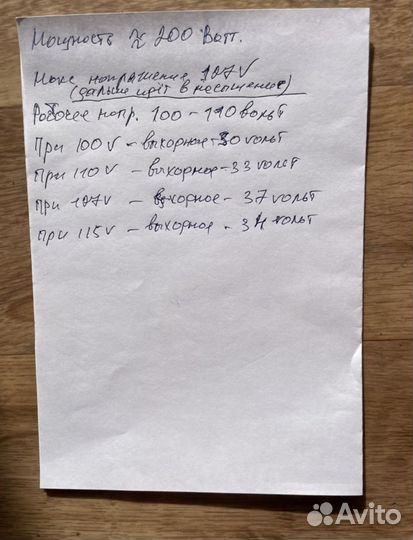 Мощность ≈ 200 Ватт.
Макс напряжение 127V
(дальше идёт в насыщение)
Рабочее напр. 100-110 вольт
При 100V - выходное - 30 вольт
При 110V - выходное - 33 вольт
При 127V - выходное - 37 вольт
При 115V - выходное - 34 вольт
Avito